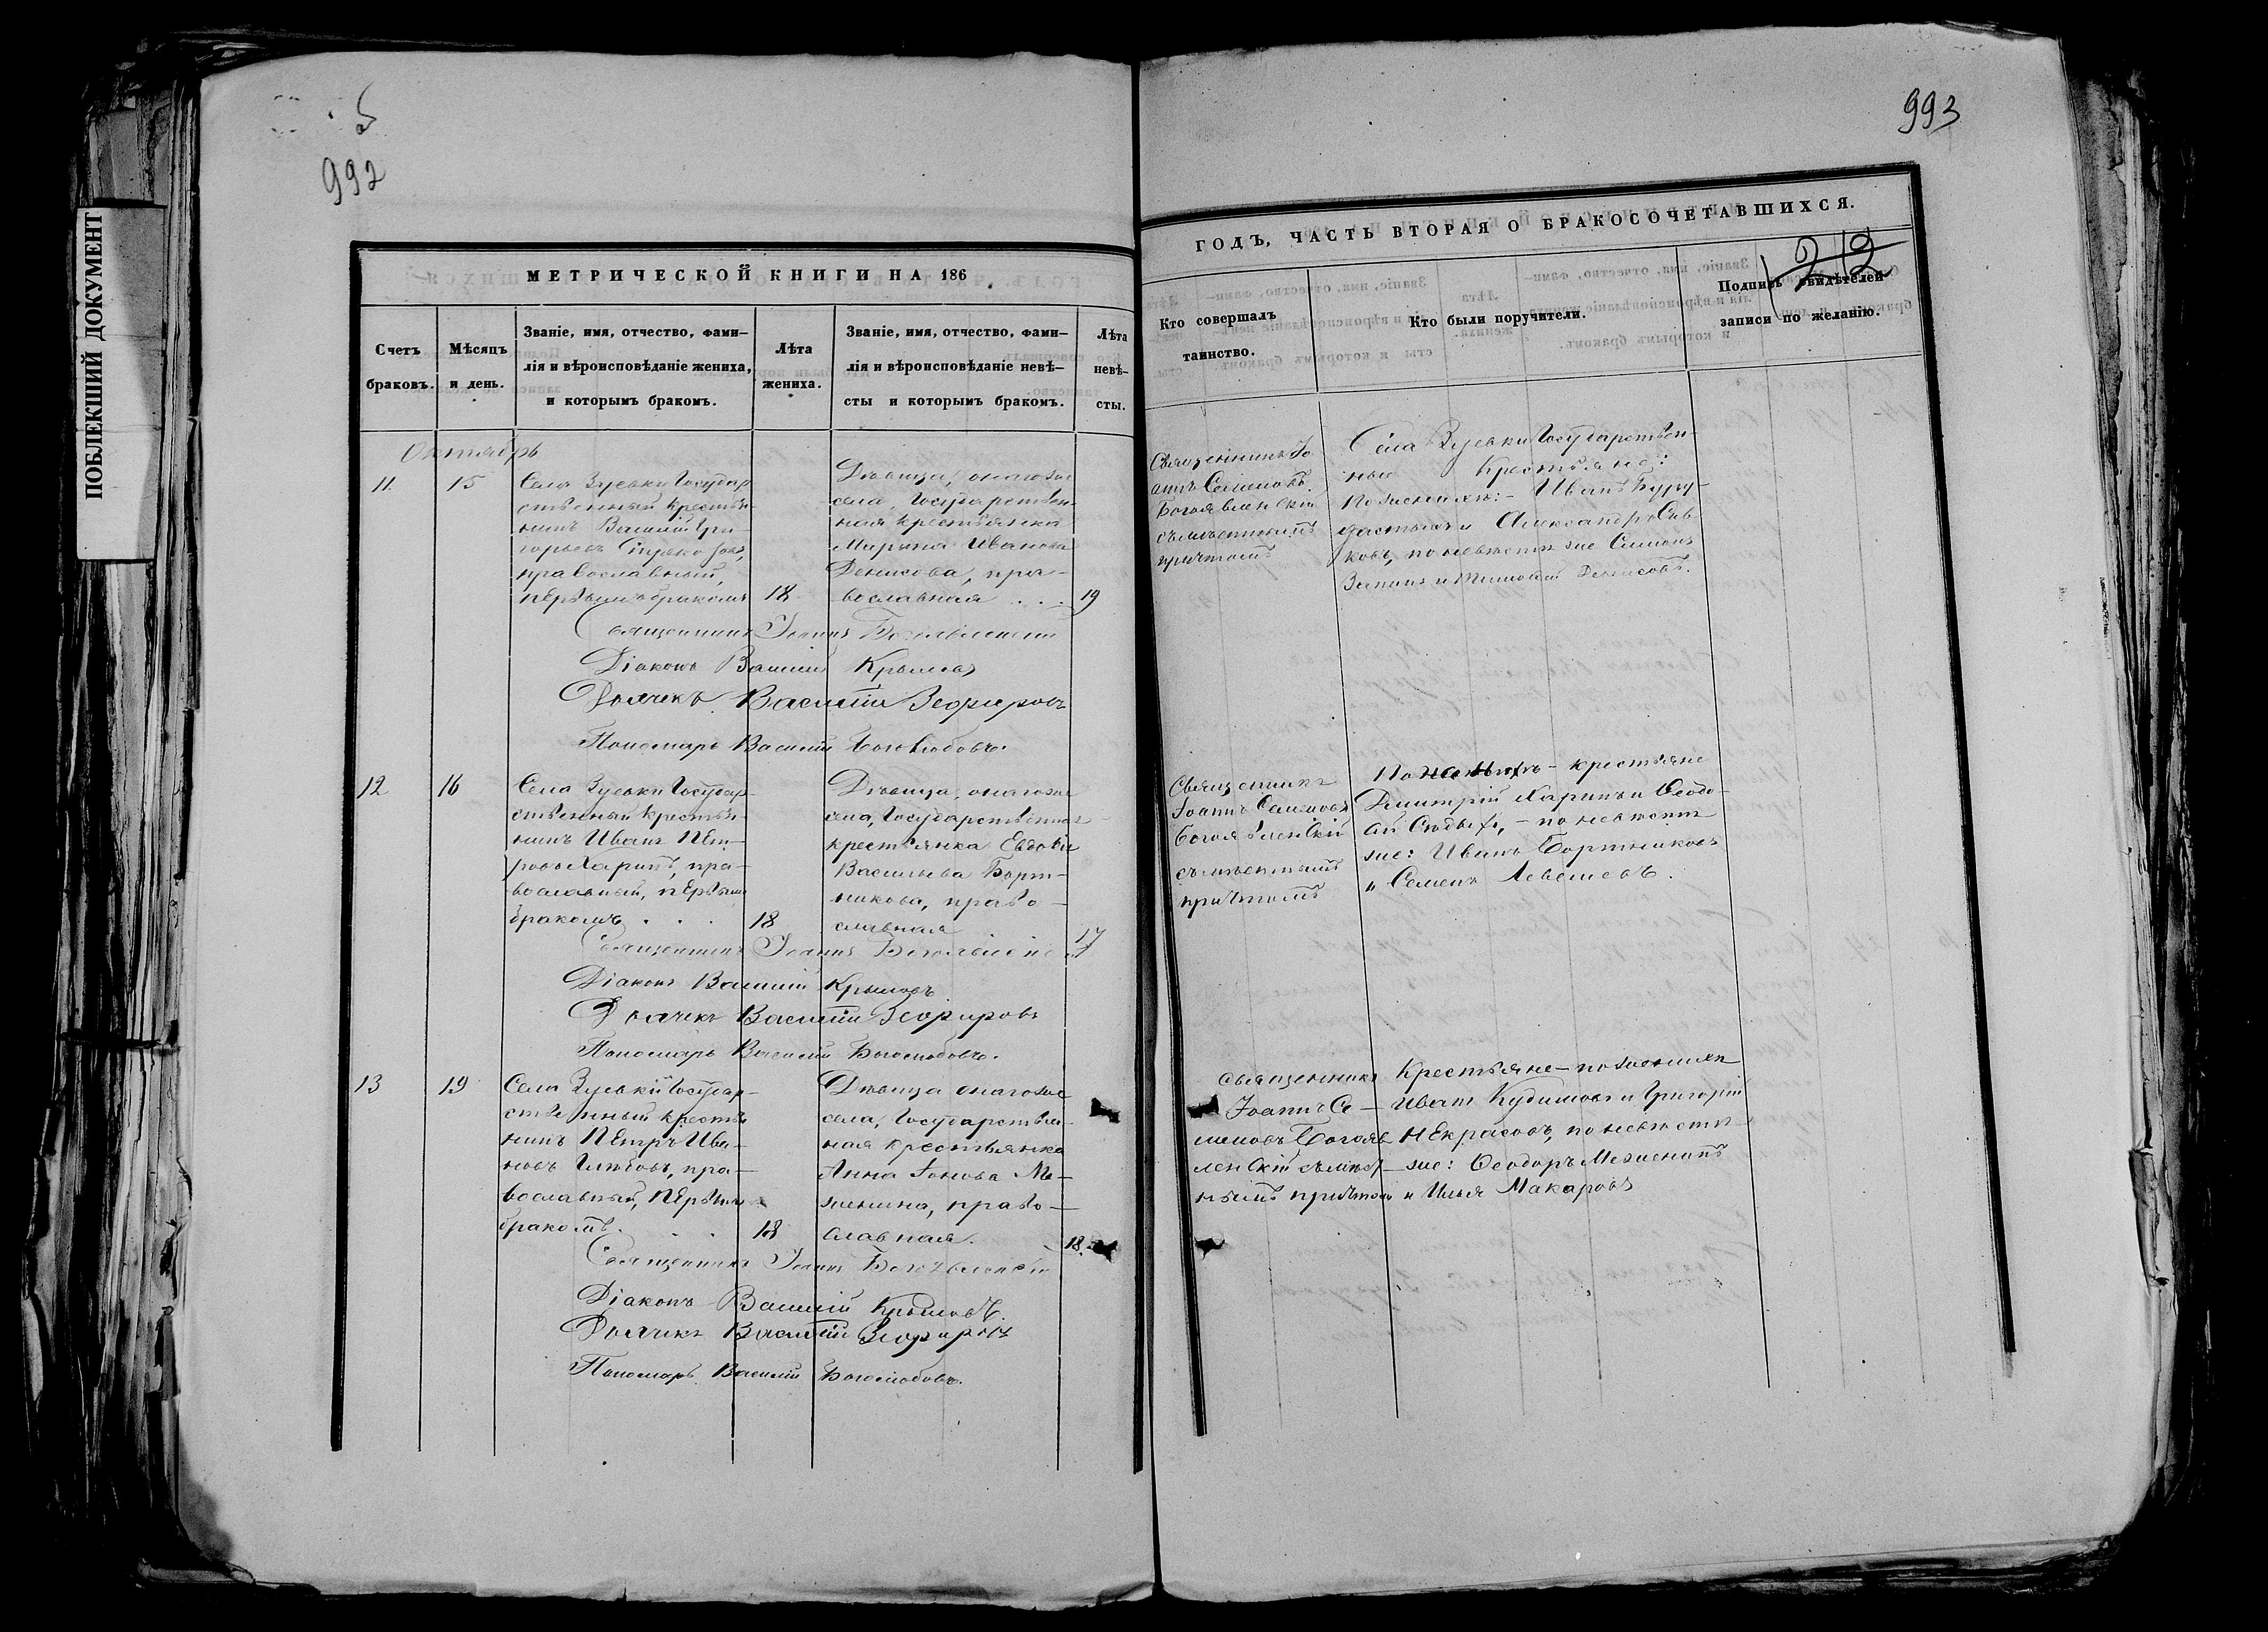 ПОБЛЕКШИЙ ДОКУМЕНТ
992
МЕТРИЧЕСКОЙ КНИГИ НА 186
Счетъ браковъ.
Мѣсяцъ и день.
Званіе, имя, отчество, фами-
лія и вѣроисповѣданіе жениха,
и которымъ бракомъ.
Лѣта
жениха.
Званіе, имя, отчество, фами-
лія и вѣроисповѣданіе невѣ-
сты и которымъ бракомъ.
Лѣта
невѣ-
сты.
Октябрь
11.
15
Села Зуевки Государ
ственный крестья-
нинъ Василій Гри-
горьевъ
православный,
первымъ бракомъ
18
Дѣвица, онагоже
села, Государствен-
ная крестьянка
Марина Иванова
Денисова, пра-
вославная . . .
19
Священникъ Іоаннъ Богоявленскій
Діаконъ Василій Крыловъ
Дьячекъ Василій Зефировъ
Пономарь Василій Боголюбовъ.
12
16
Села Зуевки Государ-
ственный крестья-
нинъ Иванъ Пет-
ровъ Харинъ, пра-
вославный, первымъ
бракомъ . . .
18
Дѣвица, онагоже
села, Государственная
крестьянка Евдокія
Васильева Борт-
никова, право-
славная
17
Священникъ Іоаннъ Богоявленскій
Діаконъ Василій Крыловъ
Дьячекъ Василій Зефировъ
Пономарь Василій Боголюбовъ.
13
19
Села Зуевки Государ-
ственный крестья
нинъ Петръ Ива-
новъ Глебовъ, пра-
вославный, первымъ
бракомъ. . .
18
Дѣвица онагоже
села, Государствен-
ная крестьянка
Анна Іонова Ме-
женина, право-
славная.
18.
Священникъ Іоаннъ Богоявленскій
Діаконъ Василій Крыловъ.
Дьячекъ Василій Зефировъ
Пономарь Василій Боголюбовъ.
993
ГОДЪ, ЧАСТЬ ВТОРАЯ О БРАКОСОЧЕТАВШИХСЯ.
212
Кто совершалъ
таинство.
Кто были поручители.
Подпись свидѣтелей
записи по желанію.
Священникъ Іо
аннъ Семеновъ
Богоявленскій
съ мѣстнымъ
причтомъ
Села Зуевки Государствен-
ные крестьяне:
По женихѣ: - Иванъ
и Александръ
по невѣстѣ же Симонъ
и Тимофей Денисовъ.
Священникъ
Іоаннъ Семеновъ
Богоявленскій
съ мѣстнымъ
причтомъ
По женихѣ - крестьяне
Димитрій Харинъ и Ѳеодо-
- по невѣстѣ
же: Иванъ Бортниковъ
и Семенъ
Священникъ
Іоаннъ Се-
меновъ Богояв
ленскій съ мѣст-
нымъ причтомъ
Крестьяне - по женихѣ
Иванъ Кудимовъ и Григорій
Некрасовъ, по невѣстѣ-
же: Ѳеодоръ Меженинъ
и Илья Макаровъ